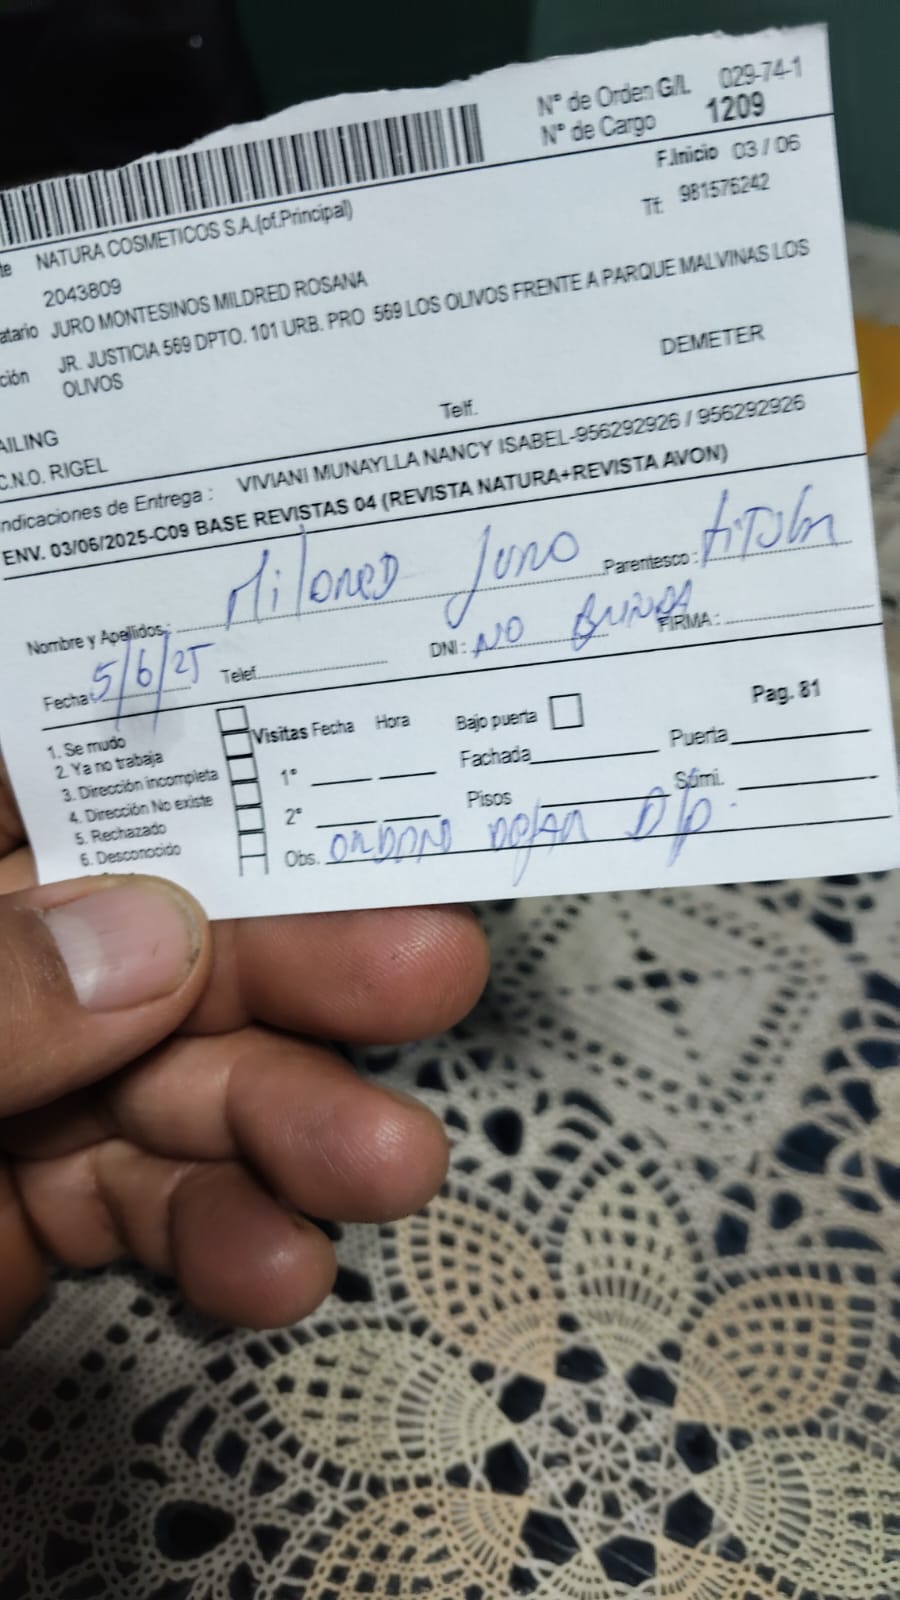 Nº de Orden G/L 029-74-1
Nº de Cargo 1209
F.Inicio 03 / 06
NATURA COSMETICOS S.A.(of.Principal)
Tf: 981576242
2043809
atario JURO MONTESINOS MILDRED ROSANA
ción JR. JUSTICIA 569 DPTO. 101 URB. PRO 569 LOS OLIVOS FRENTE A PARQUE MALVINAS LOS
OLIVOS
DEMETER
AILING Telf.
C.N.O. RIGEL
ndicaciones de Entrega : VIVIANI MUNAYLLA NANCY ISABEL-956292926 / 956292926
ENV. 03/06/2025-C09 BASE REVISTAS 04 (REVISTA NATURA+REVISTA AVON)
Nombre y Apellidos : Mildred Juro Parentesco : titular
Fecha : 5/6/25 Telef. DNI : NO BRINDA FIRMA :
Pag. 81
1. Se mudo Visitas Fecha Hora Bajo puerta
2. Ya no trabaja
3. Dirección incompleta 1° Fachada Puerta
4. Dirección No existe 2° Pisos Sumi.
5. Rechazado
6. Desconocido Obs. D/p.